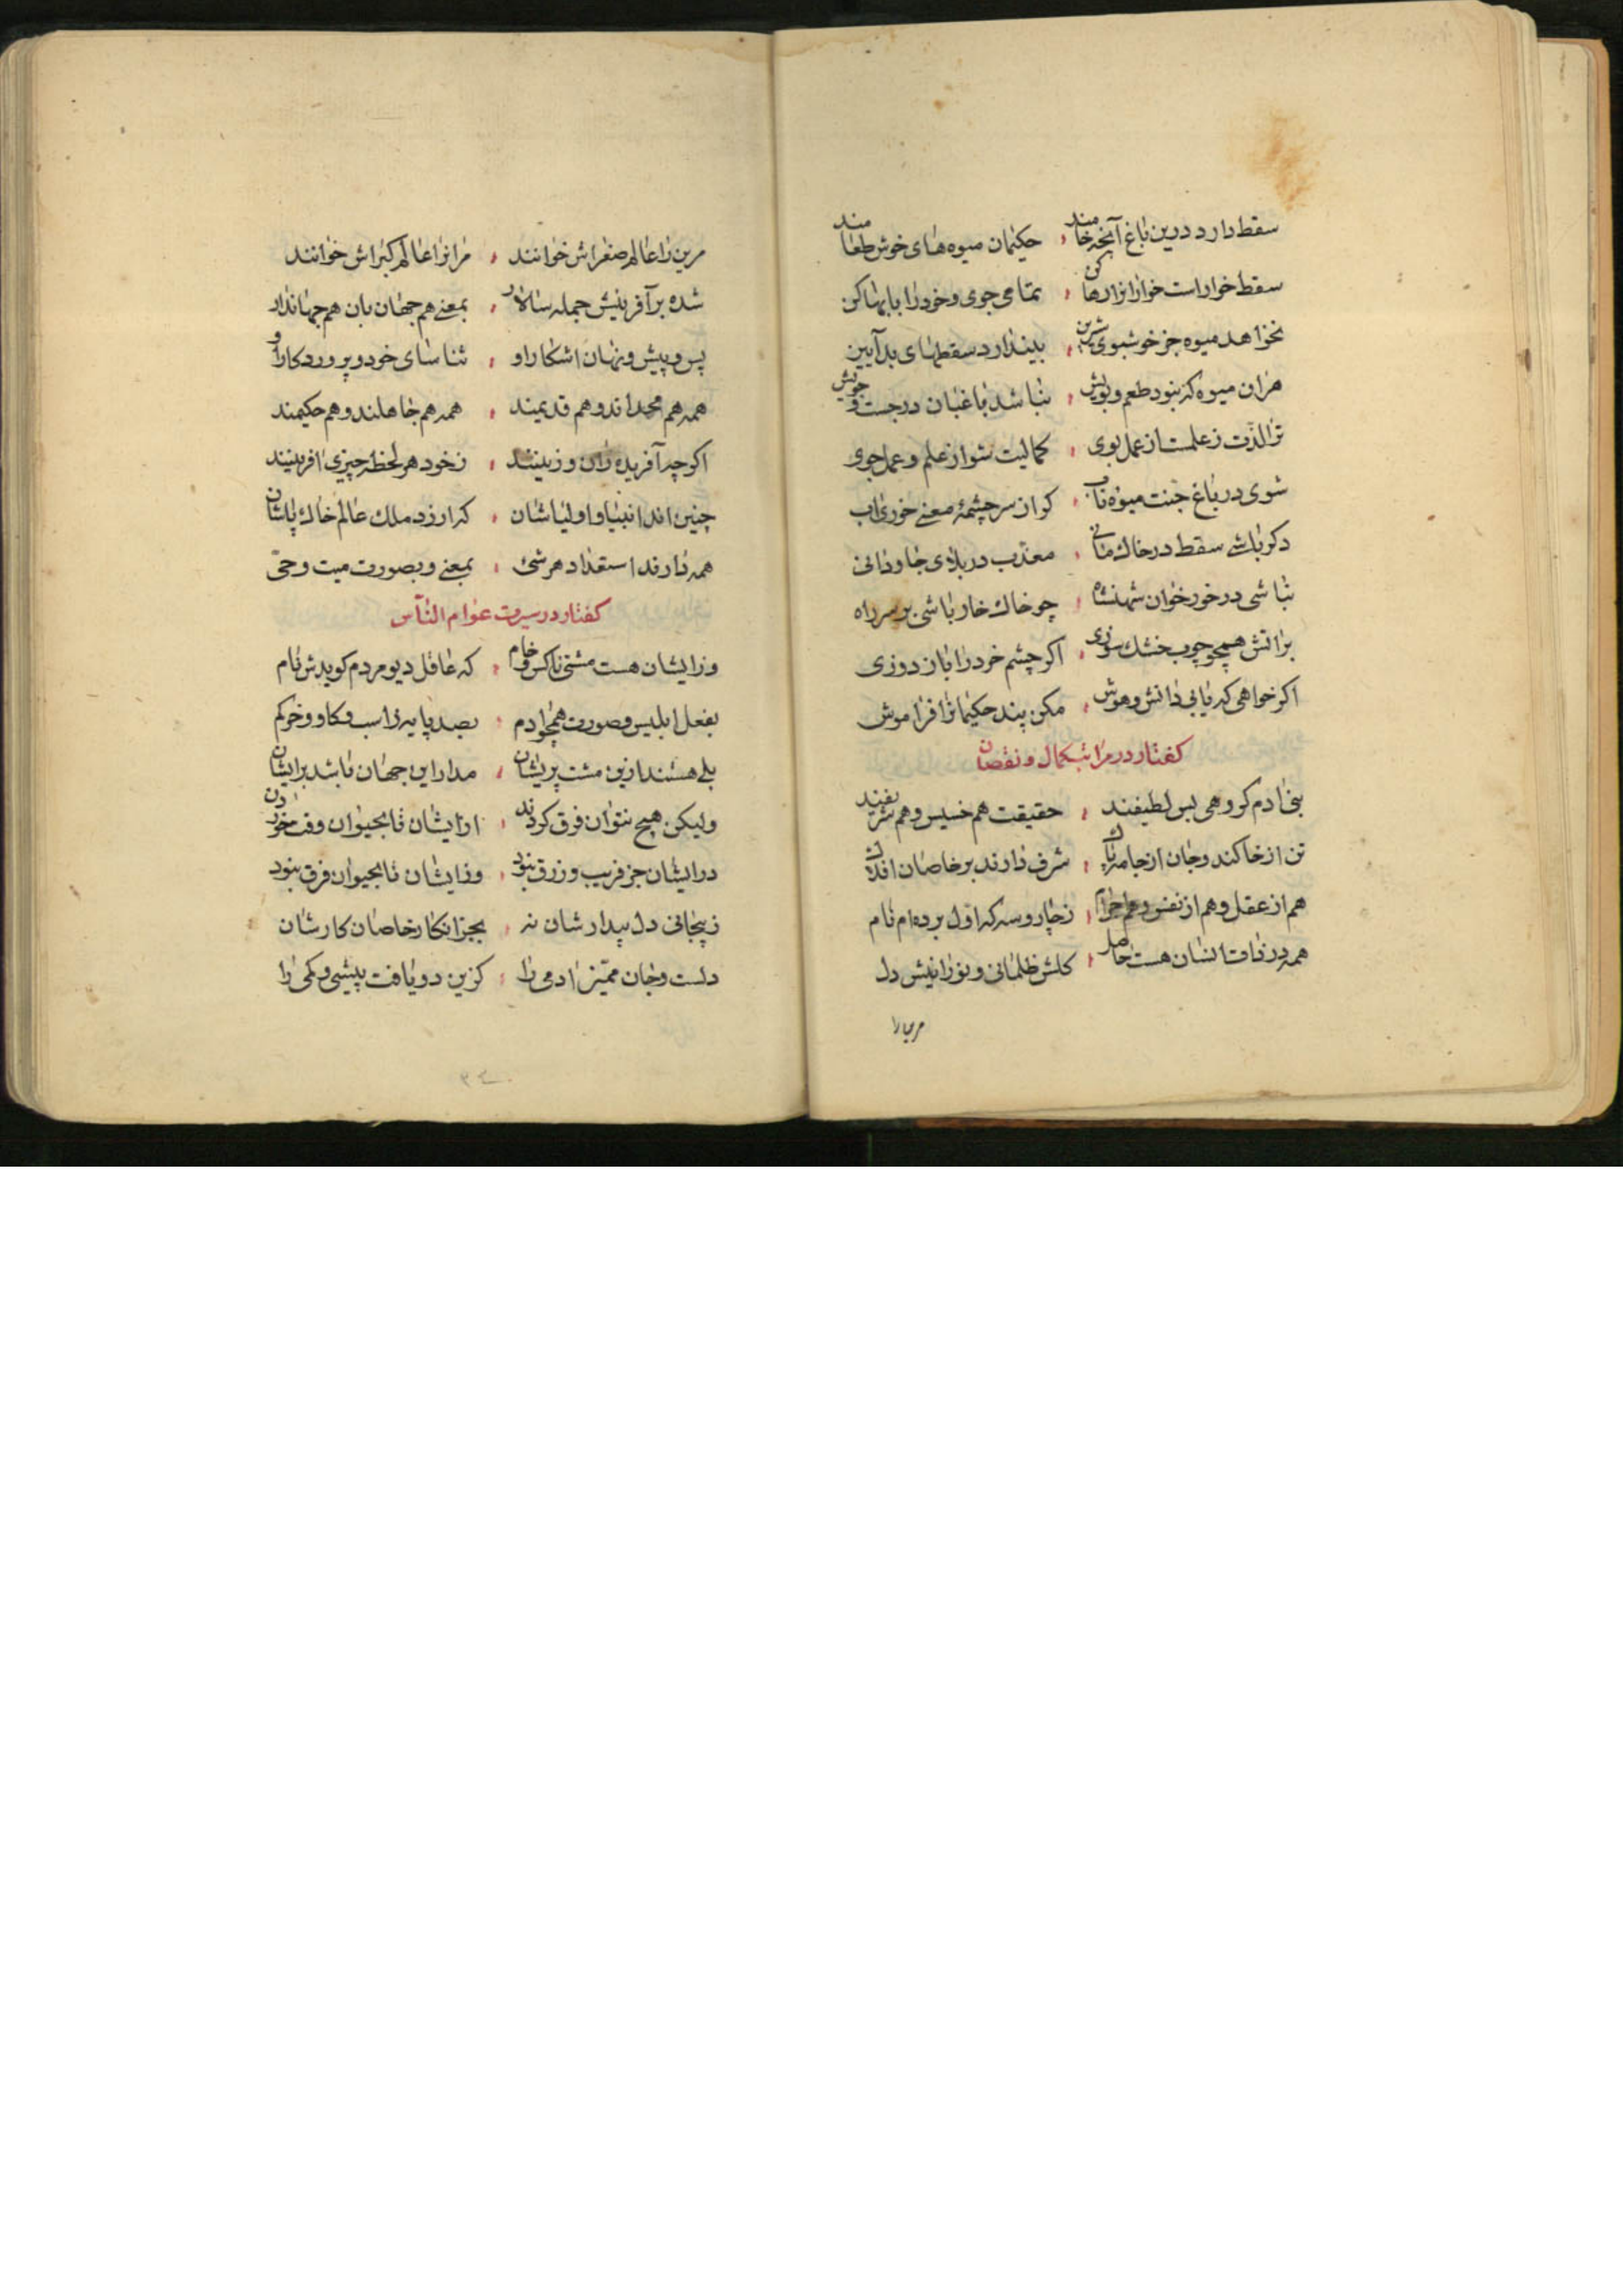 سقط دارد درین باغ آنچه خامند ، حکیمان میوه‌های خوش طعامند
سقط خوار است خوار انرا رها کن ، تمامی جوی و خود را بابها کن
نخواهد میوه جز خوشبوی شیرین ، بیندازد سقطهای بد آیین
هران میوه که نبود طعم و بویش ، نباشد باغبان در جست و جویش
ترا لذّت ز علمست از عمل بوی ، کمالیت شو از علم و عمل جوی
شوی در باغ جنت میوه ناب ، کو از سرچشمهٔ معنے خوری اب
دکر باشے سقط در خاک مانے ، معذّب در بلای جاودانی
نباشی در خور خوان شهنشاه ، چو خاک خار باشی بر سر راه
بر اتش همچو چوب خشک سوزی ، اکر چشم خرد را باز دوزی
اکر خواهی که یابی دانش و هوش ، مکن پند حکیمانرا فراموش
کفتار در مراتب کمال و نقصان
بنی ادم کروهی بس لطیفند ، حقیقت هم خسیس و هم شریفند
تن از خاکند و جان از جامه پاک ، شرف دارند بر خاصان افلاک
هم از عقل و هم از نفس و هم اجرام ، ز چار و سه که اول برده‌ام نام
همه در ذات انسان هست حاصل ، کلش ظلمانی و نورانیش دل
مرین را
مرین را عالم صغراش خوانند ، مرانرا عالم کبراش خوانند
شده بر آفرینش جمله سالار ، بمعنے هم جهان بان هم جهاندار
پس و پیش و نهان اشکارا و ، شناسای خود و پروردکار او
همه هم محدث اند و هم قدیمند ، همه هم جاهلند و هم حکیمند
اکرچه آفریده زان و زینند ، ز خود هر لحظه چیزی افرینند
چنین اند انبیا و اولیاشان ، که ارزد ملک عالم خاک پاشان
همه دارند استعداد هر شئ ، بمعنے و بصورت میت و حیّ
کفتار در سیرت عوام النّاس
وز ایشان هست مشتی ناکس و خام ، که عاقل دیو مردم کویدش نام
بفعل ابلیس و صورت همچو ادم ، بصد پایه ز اسب و کاو و خر کم
بلے هستند ازین مشت پریشان ، مدار این جهان باشد بر ایشان
ولیکن هیچ نتوان فرق کردن ، از ایشان تا بحیوان وقت خوردن
در ایشان جز فریب و زرق نبود ، وز ایشان تا بحیوان فرق نبود
ز بیجانی دل بیدارشان نه ، بجز انکار خاصان کارشان
دلست و جان ممیّز ادمی را ، کزین دو یافت بیشی و کمی را